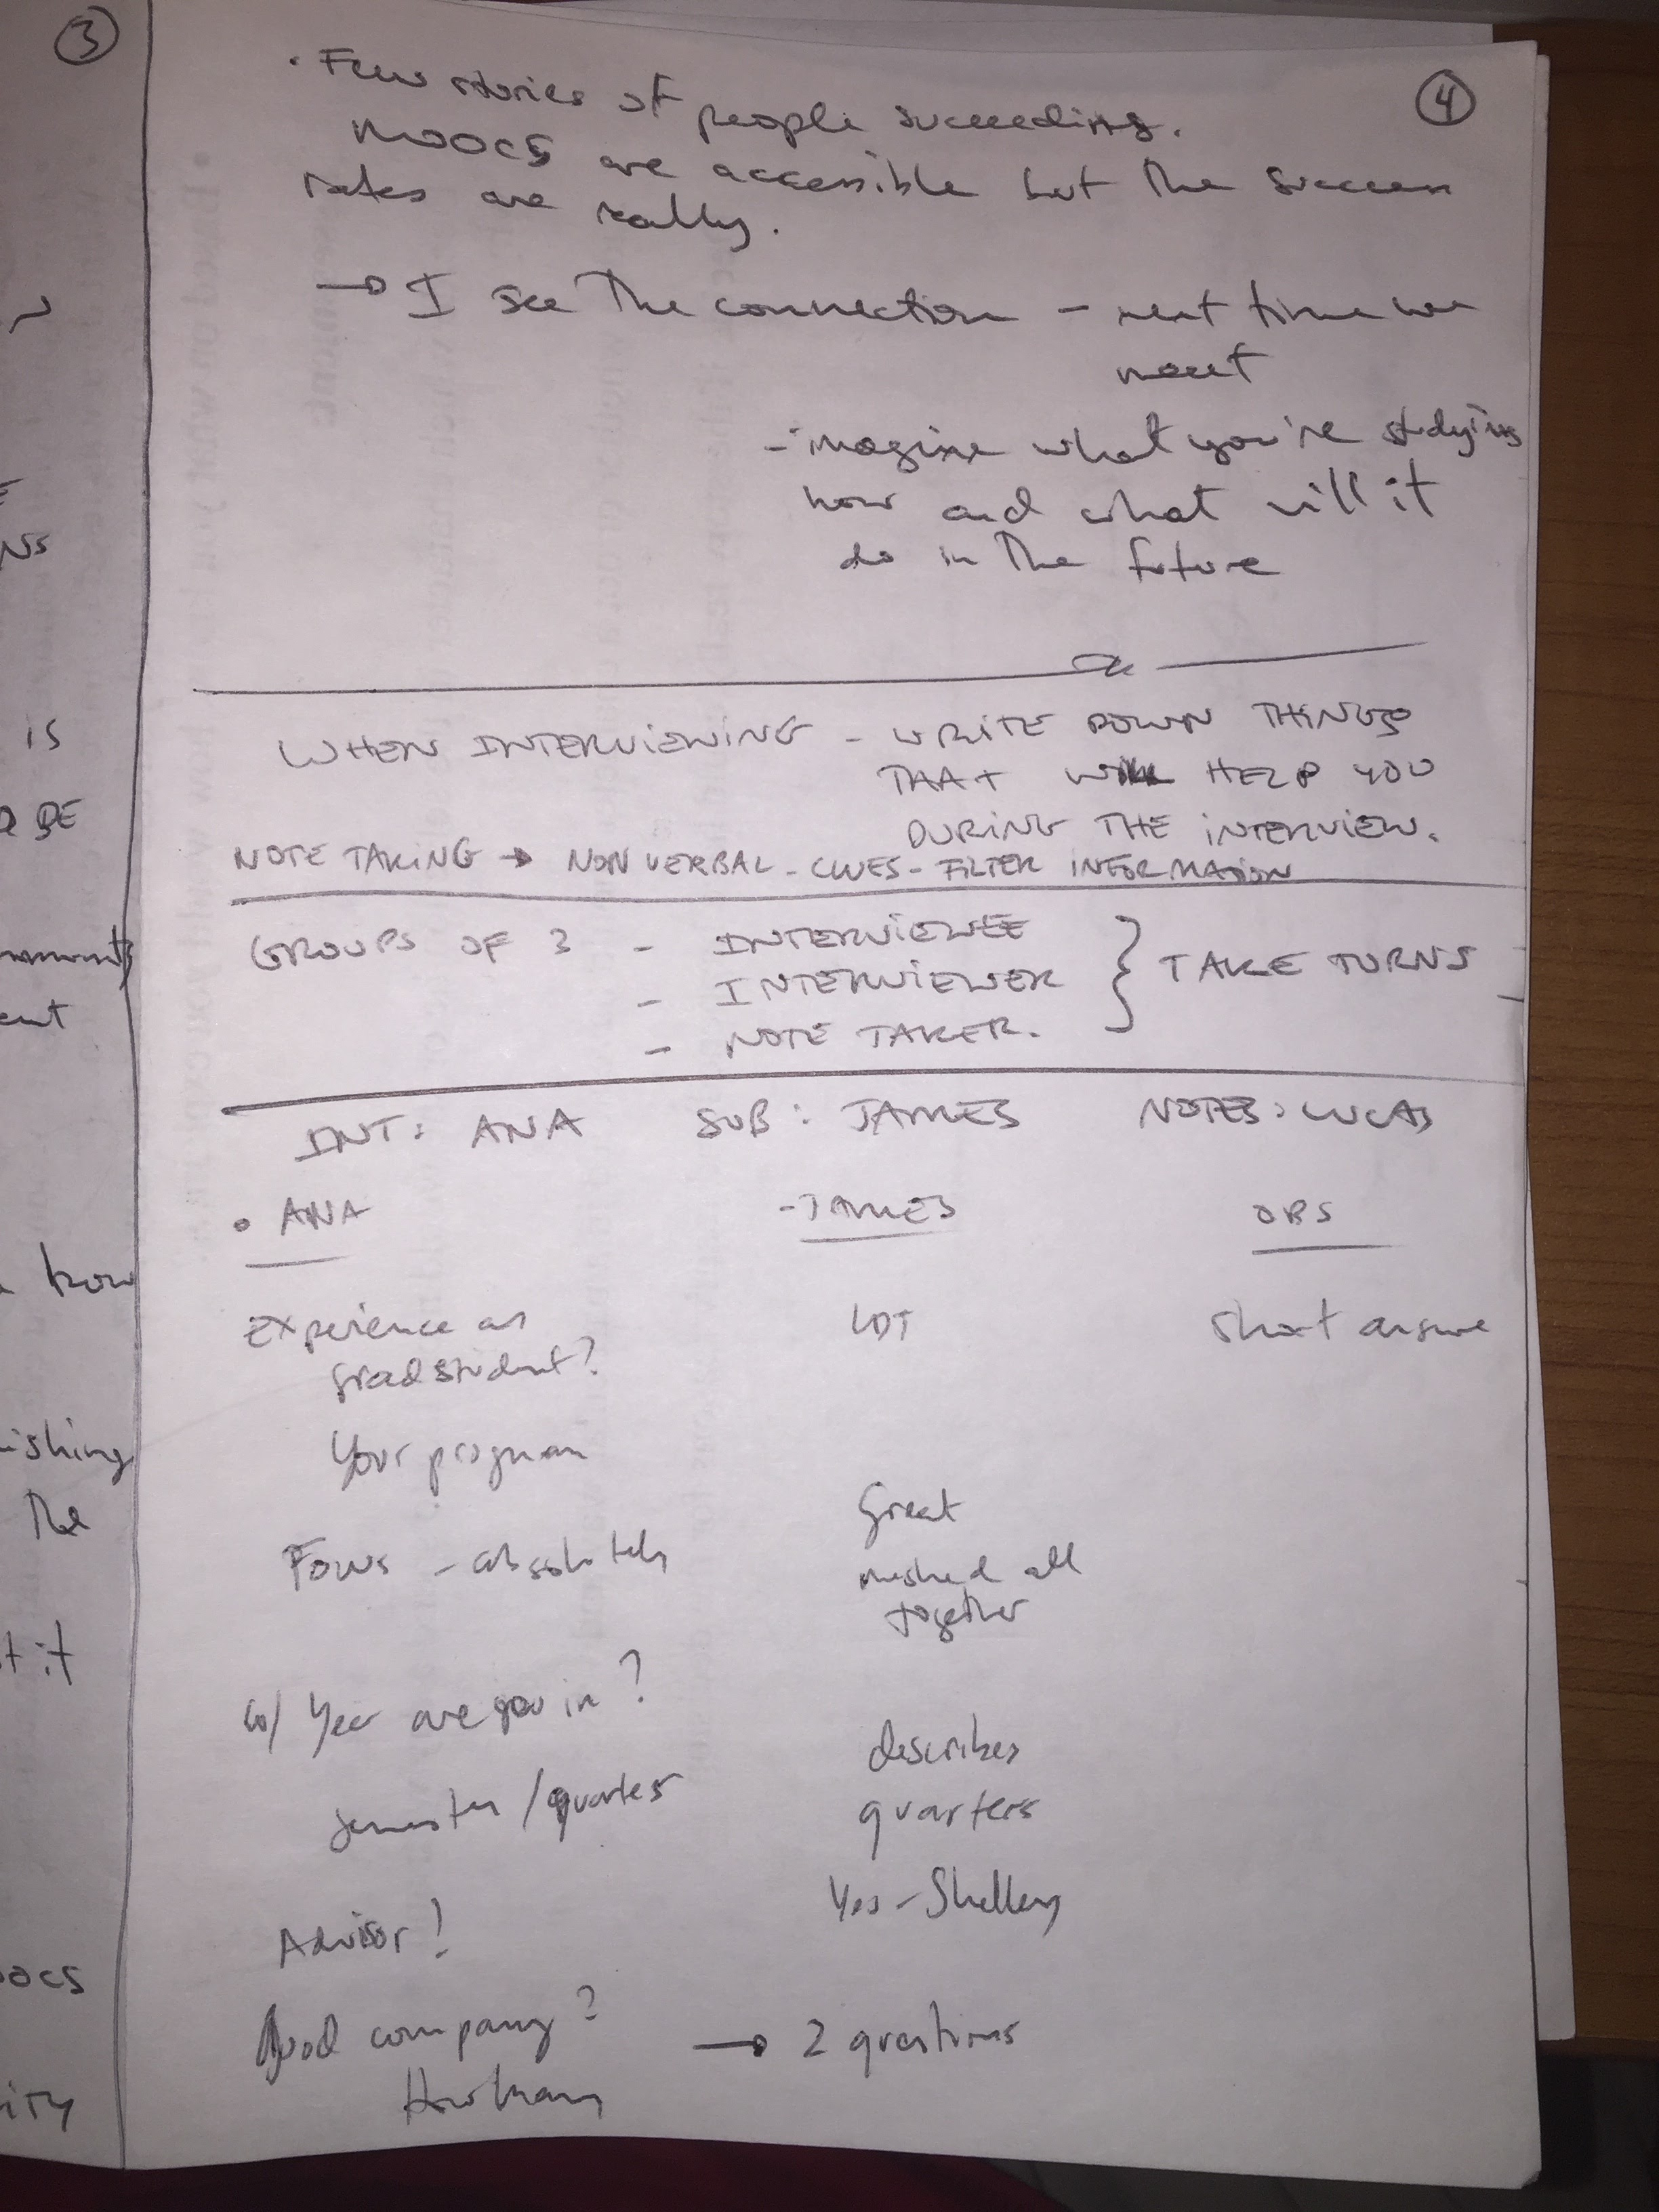 3
N
E
NS
is
BE
ent
how
ishing
The
t it
oocs
ity
4
· Few stories of people succeeding.
MOOCs are accessible but the success
rates are really.
→ I see The connection - next time we
meet
- imagine what you're studying
now and what will it
do in The future
WHEN INTERVIEWING - WRITE DOWN THINGS
THAT WILL HELP YOU
DURING THE INTERVIEW.
NOTE TAKING → NON VERBAL - CLUES - FILTER INFORMATION
GROUPS OF 3 - INTERVIEWEE
- INTERVIEWER } TAKE TURNS
- NOTE TAKER.
INT: ANA SUB: JAMES NOTES: LUCAS
• ANA - JAMES OBS
Experience as LDT short answer
grad student?
Your program
Great
Focus - absolutely meshed all
together
w/ Year are you in?
describes
semester / quarter quarters
Yes - Shelley
Advisor?
Good company? → 2 questions
How many